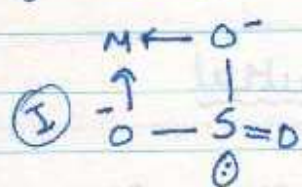 M ← O⁻
↑ |
Ⓘ ⁻O — S = O